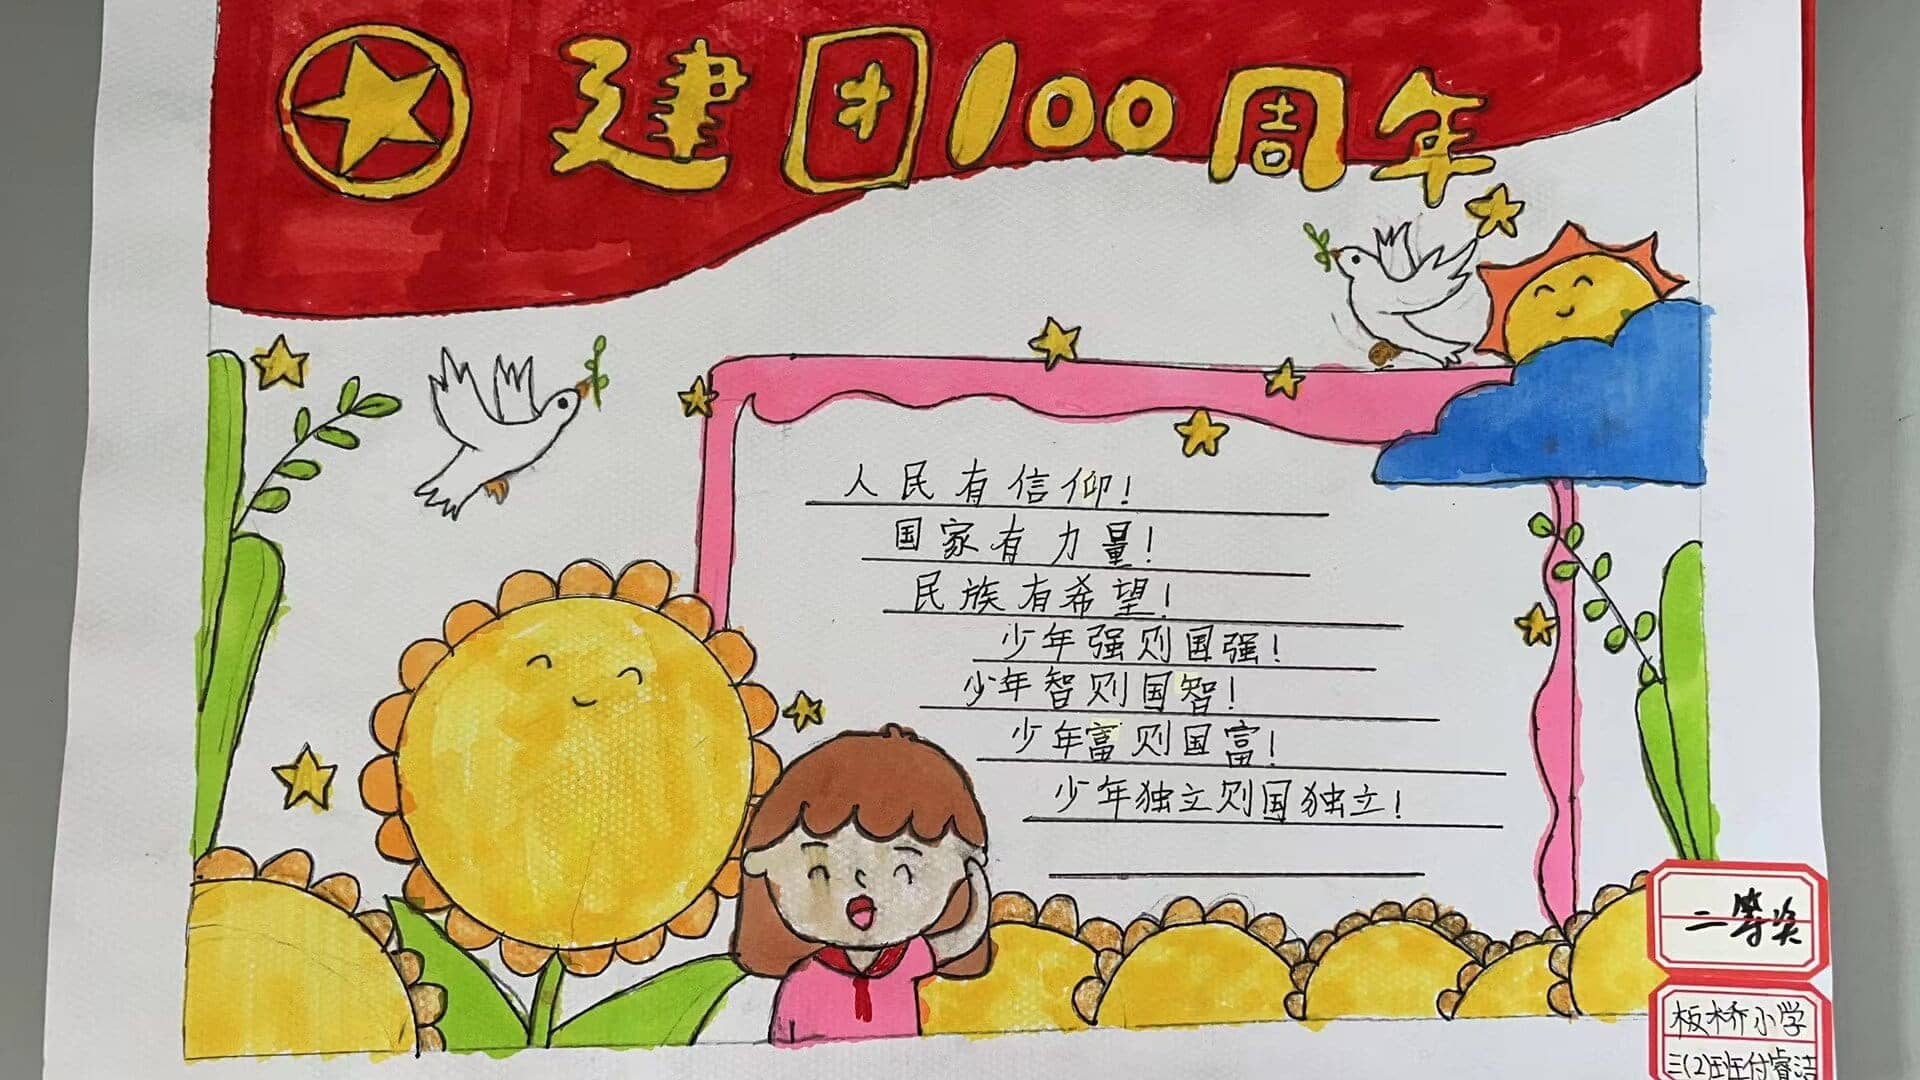 建团100周年
人民有信仰!
国家有力量!
民族有希望!
少年强则国强!
少年智则国智!
少年富则国富!
少年独立则国独立!
二等奖
板桥小学
三(2)班付睿洁